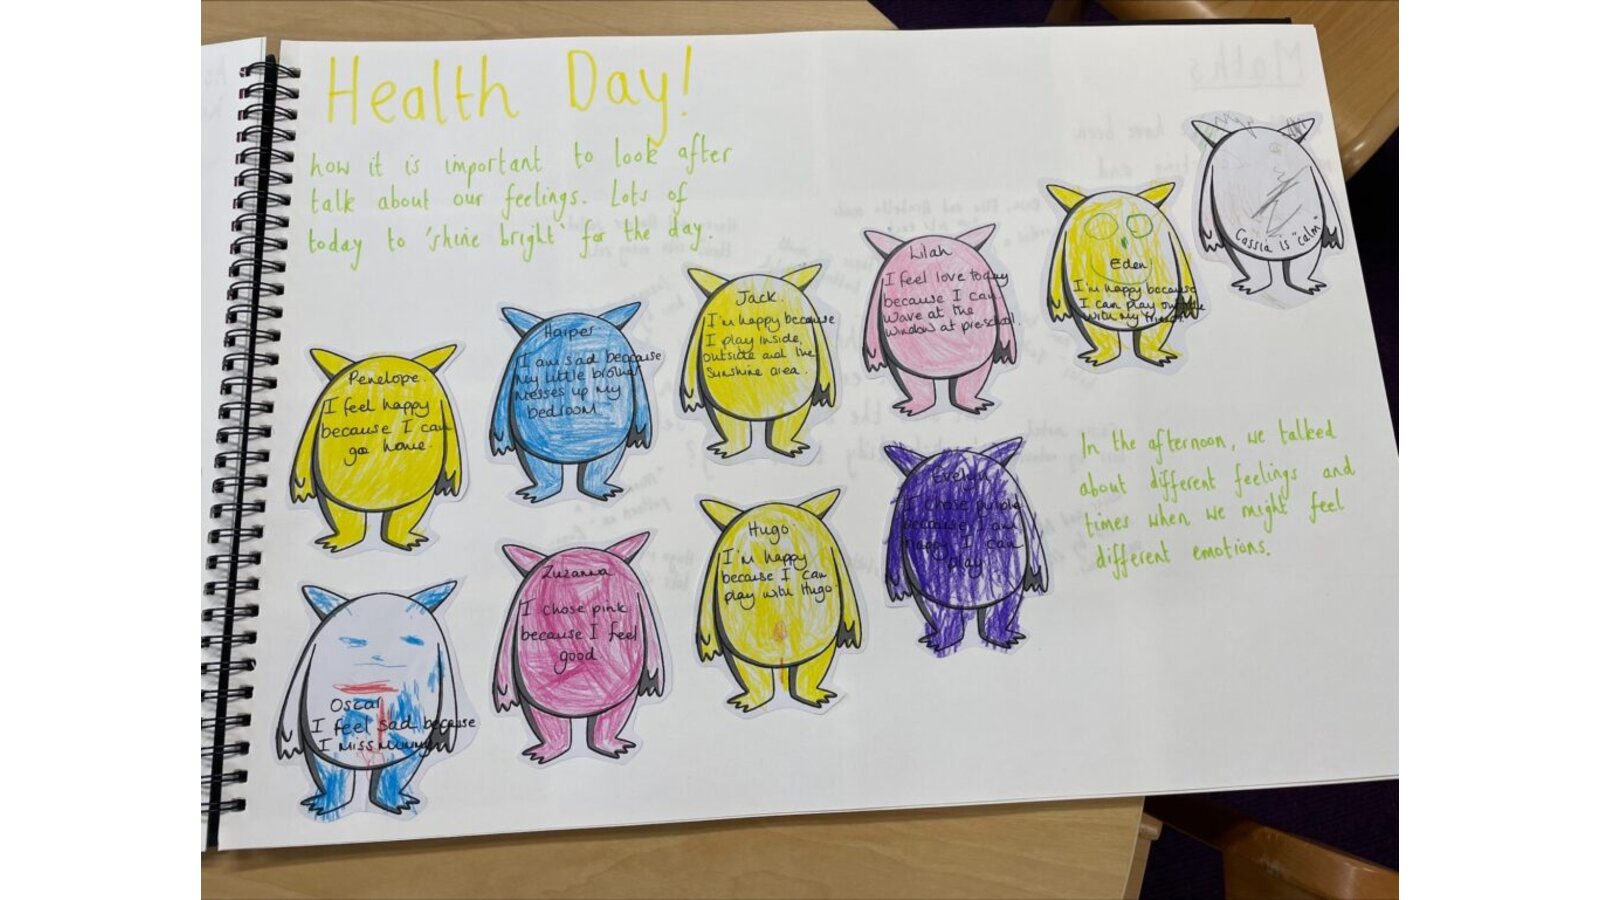 Health Day!
how it is important to look after
talk about our feelings. Lots of
today to 'shine bright' for the day.
Penelope.
I feel happy
because I can
go home.
Harper
I am sad because
my little brother
messes up my
bedroom
Jack.
I'm happy because
I play inside,
outside and the
Sunshine area.
Lilah
I feel love today
because I can
wave at the
window at preschool.
Eden
I'm happy because
I can play outside
with my friends.
Cassia is "calm."
Oscar
I feel sad because
I miss mummy
Zuzanna
I chose pink
because I feel
good
Hugo
I'm happy
because I can
play with Hugo
Evelyn
I chose purple
because I am
happy I can
play
In the afternoon, we talked
about different feelings and
times when we might feel
different emotions.
Maths